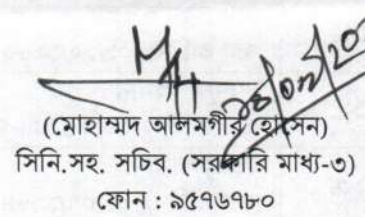 (মোহাম্মদ আলমগীর হোসেন)
সিনি.সহ. সচিব. (সরকারি মাধ্য-৩)
ফোন : ৯৫৭৬৭৮০